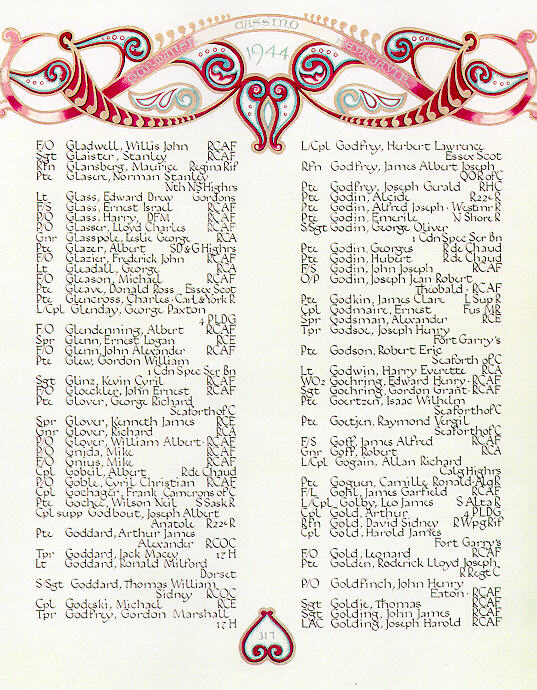 CASSINO
1944
F/O Gladwell, Willis John RCAF
Sgt Glaister, Stanley RCAF
Rfn Glansberg, Maurice Regina Rif
Pte Glaser, Norman Stanley
Nth NS Highrs
Lt Glass, Edward Drew Gordons
F/S Glass, Ernest Israel RCAF
P/O Glass, Harry, DFM RCAF
P/O Glasser, Lloyd Charles RCAF
Gnr Glasspole, Leslie George RCA
Pte Glazer, Albert SD&G Highrs
F/O Glazier, Frederick John RCAF
Lt Gleadall, George RCA
F/O Gleason, Michael RCAF
Pte Gleave, Donald Ross Essex Scot
Pte Glencross, Charles Carl & York R
L/Cpl Glenday, George Paxton
4 PLDG
F/O Glendenning, Albert RCAF
Spr Glenn, Ernest Logan RCE
F/O Glenn, John Alexander RCAF
Pte Glew, Gordon William
1 Cdn Spec Ser Bn
Sgt Glinz, Kevin Cyril RCAF
F/O Gloeckler, John Ernest RCAF
Pte Glover, George Richard
Seaforth of C
Spr Glover, Kenneth James RCE
Gnr Glover, Richard RCA
P/O Glover, William Albert · RCAF
P/O Gnida, Mike RCAF
F/O Gnius, Mike RCAF
Cpl Gobeil, Albert R de Chaud
P/O Goble, Cyril Christian RCAF
Cpl Gochager, Frank Camerons of C
Pte Gocher, Wilson Neil S Sask R
Cpl supp Godbout, Joseph Albert
Anatole R22eR
Pte Goddard, Arthur James
Alexander RCOC
Tpr Goddard, Jack Macey 17 H
Lt Goddard, Ronald Milford
Dorset
S/Sgt Goddard, Thomas William
Sidney RCOC
Cpl Godeski, Michael RCE
Tpr Godfrey, Gordon Marshall
17 H
L/Cpl Godfrey, Herbert Lawrence
Essex Scot
Rfn Godfrey, James Albert Joseph
QOR of C
Pte Godfrey, Joseph Gerald RHC
Pte Godin, Alcide R22eR
Pte Godin, Alfred Joseph · Westmr R
Pte Godin, Emerile N Shore R
S/Sgt Godin, George Oliver
1 Cdn Spec Ser Bn
Pte Godin, Georges R de Chaud
Pte Godin, Hubert R de Chaud
F/S Godin, John Joseph RCAF
O/P Godin, Joseph Jean Robert
Theobald · RCAF
Pte Godkin, James Clare L Sup R
Cpl Godmaire, Ernest Fus MR
Spr Godsman, Alexander RCE
Tpr Godsoe, Joseph Henry
Fort Garry's
Pte Godson, Robert Eric
Seaforth of C
Lt Godwin, Harry Everette RCA
WO2 Goehring, Edward Henry · RCAF
Sgt Goehring, Gordon Grant · RCAF
Pte Goertzen, Isaac Wilhelm
Seaforth of C
Pte Goetjen, Raymond Vergil
Seaforth of C
F/S Goff, James Alfred RCAF
Gnr Goff, Robert RCA
L/Cpl Gogain, Allan Richard
Calg Highrs
Pte Goguen, Camille Ronald · Alg R
F/L Gohl, James Garfield RCAF
L/Cpl Golby, Leo James S Alta R
Cpl Gold, Arthur 4 PLDG
Rfn Gold, David Sidney R Wpg Rif
Cpl Gold, Harold James
Fort Garry's
F/O Gold, Leonard RCAF
Pte Golden, Roderick Lloyd Joseph
R Regt C
P/O Goldfinch, John Henry
Eaton · RCAF
Sgt Goldie, Thomas RCAF
Sgt Golding, John James RCAF
LAC Golding, Joseph Harold RCAF
317